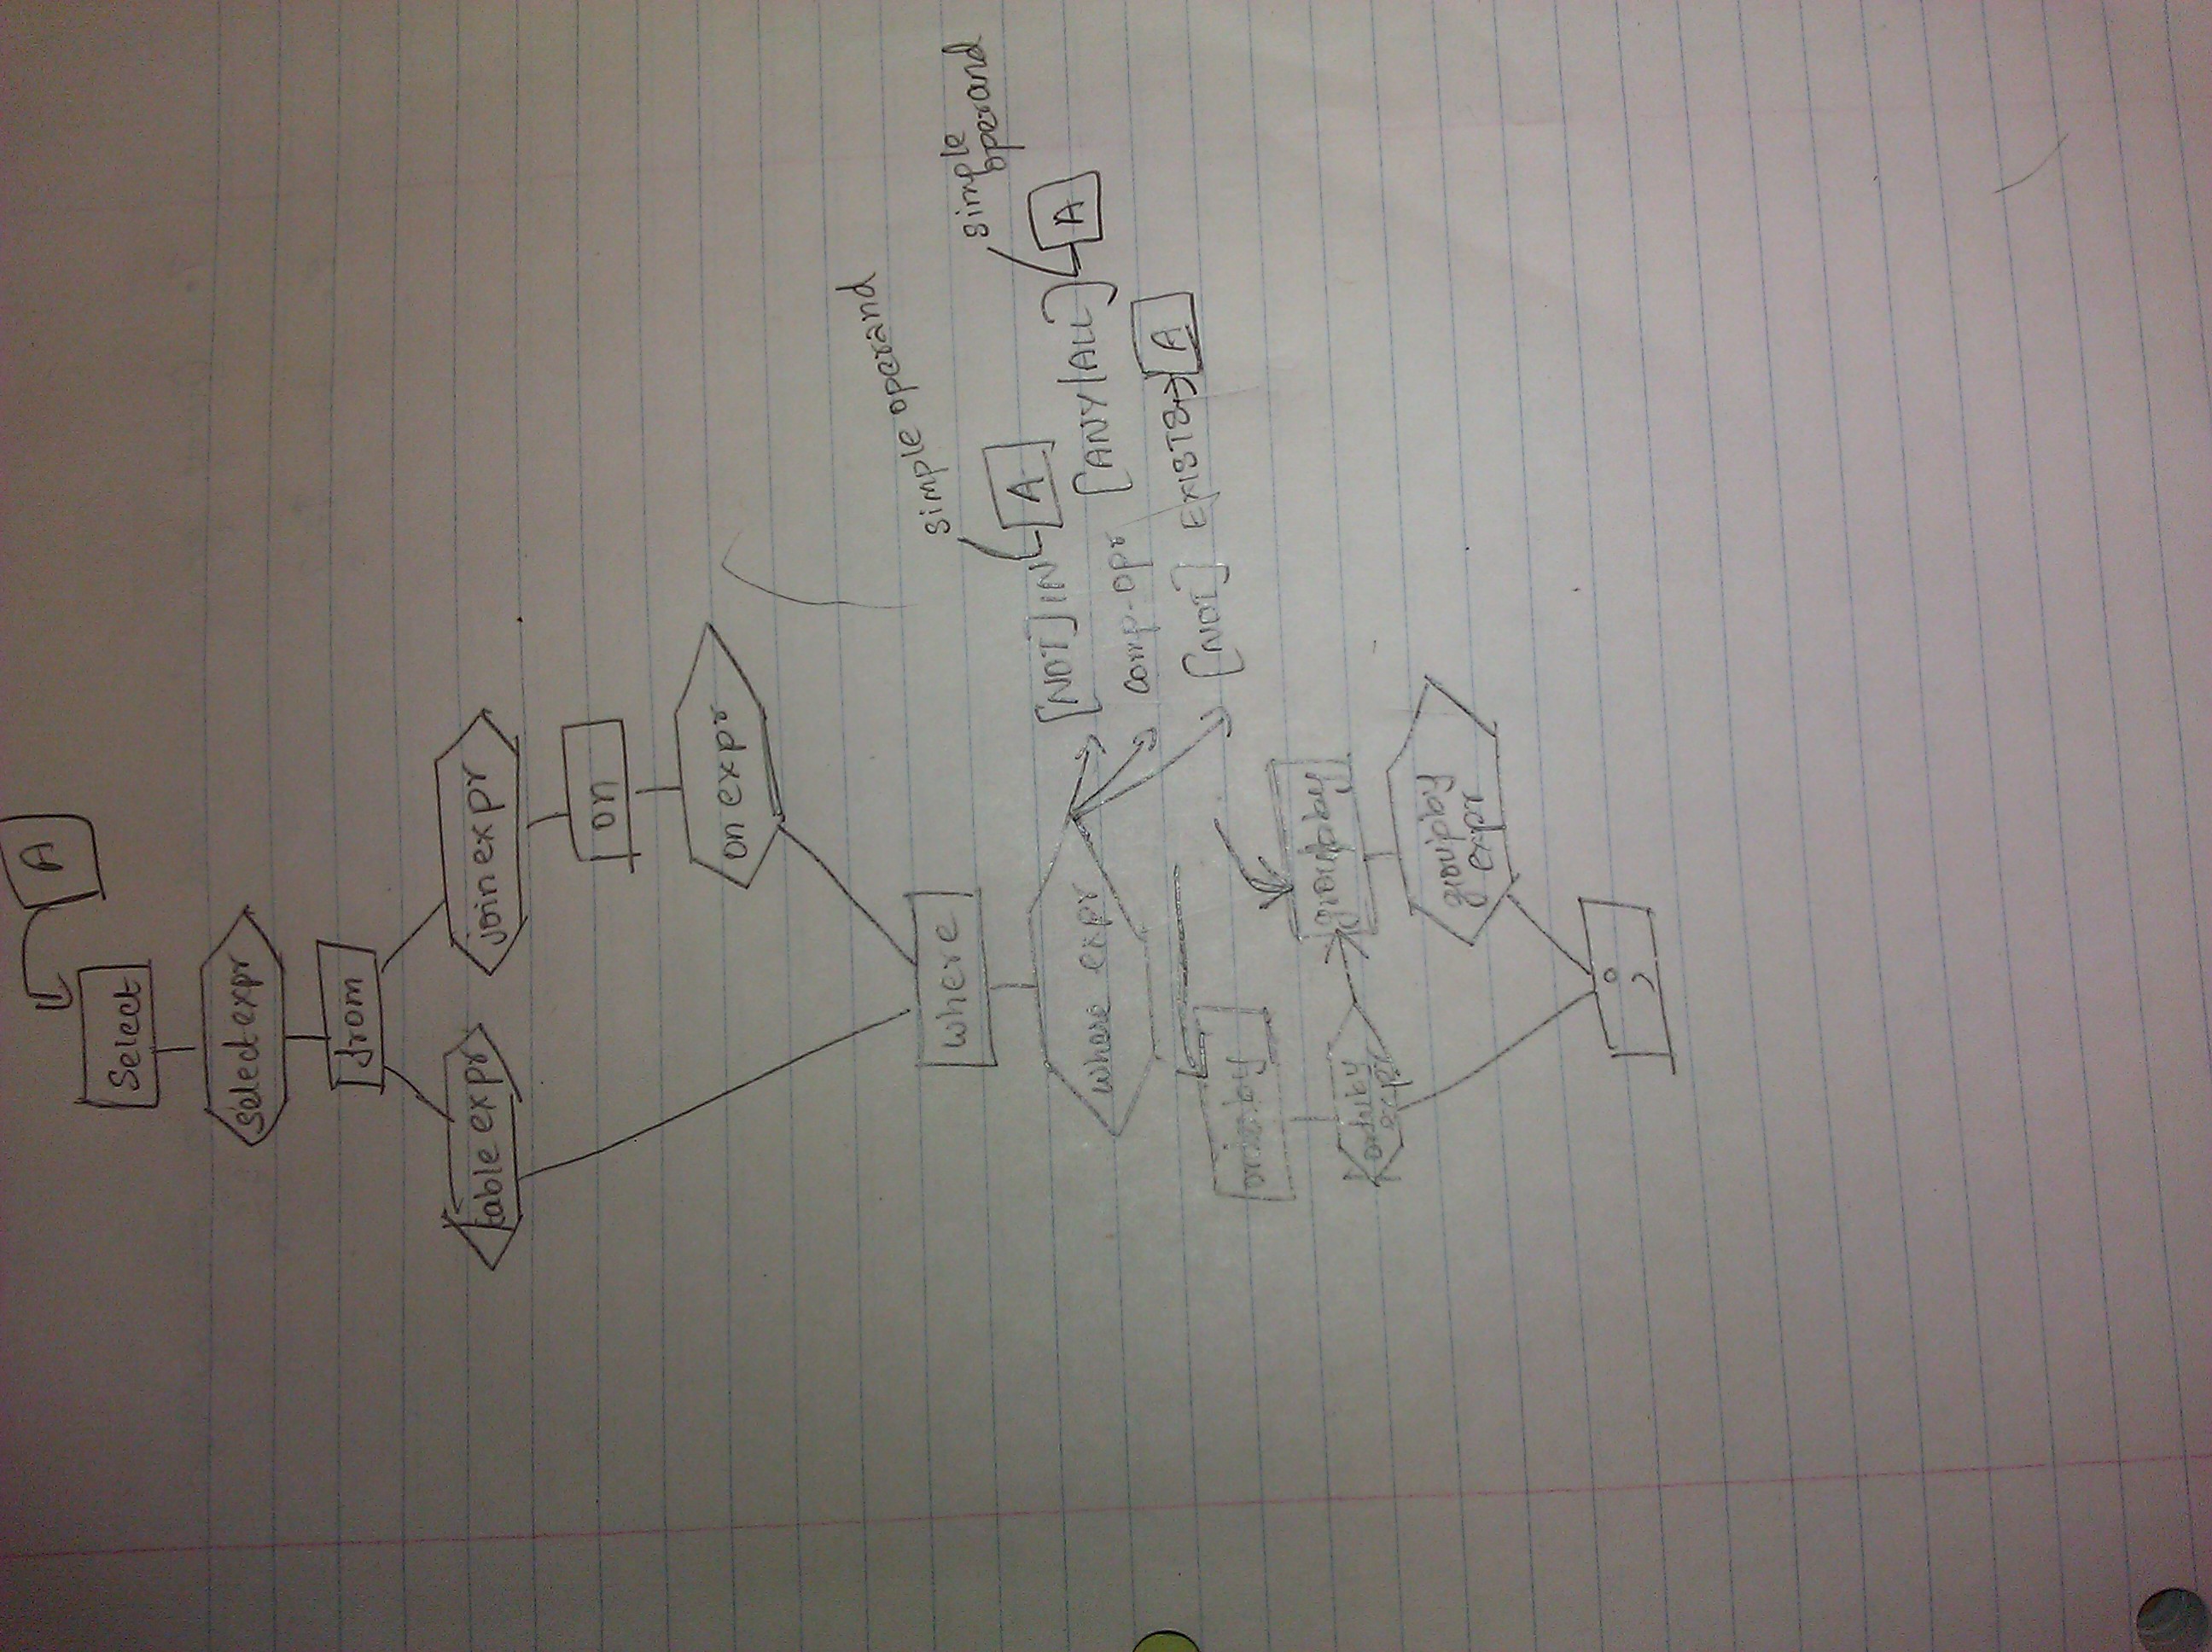 A
Select
select expr
from
table expr
join expr
on
on expr
where
where expr
simple operand
[NOT] IN
A
simple
operand
comp-opr [ANY|ALL]
A
[NOT] EXISTS
A
orderby
orderby
expr
groupby
groupby
expr
;